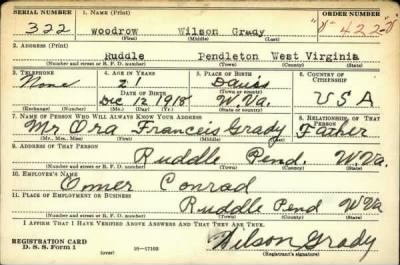 SERIAL NUMBER 1. NAME (Print) ORDER NUMBER
322 Woodrow Wilson Grady
(First) (Middle) (Last)
2. ADDRESS (Print)
Ruddle Pendleton West Virginia
(Number and street or R. F. D. number) (Town) (County) (State)
3. TELEPHONE 4. AGE IN YEARS 5. PLACE OF BIRTH 6. COUNTRY OF CITIZENSHIP
None 21 Davis
DATE OF BIRTH (Town or county)
Dec 12 1918 W.Va. USA
(Exchange) (Number) (Mo.) (Day) (Yr.) (State or country)
7. NAME OF PERSON WHO WILL ALWAYS KNOW YOUR ADDRESS 8. RELATIONSHIP OF THAT PERSON
Mr Ora Francis Grady Father
(Mr., Mrs., Miss) (First) (Middle) (Last)
9. ADDRESS OF THAT PERSON
Ruddle Pend. W.Va.
(Number and street or R. F. D. number) (Town) (County) (State)
10. EMPLOYER'S NAME
Omer Conrad
11. PLACE OF EMPLOYMENT OR BUSINESS
Ruddle Pend W Va
(Number and street or R. F. D. number) (Town) (County) (State)
I AFFIRM THAT I HAVE VERIFIED ABOVE ANSWERS AND THAT THEY ARE TRUE.
REGISTRATION CARD
D. S. S. Form 1 (over) 16—17105 Wilson Grady
(Registrant's signature)